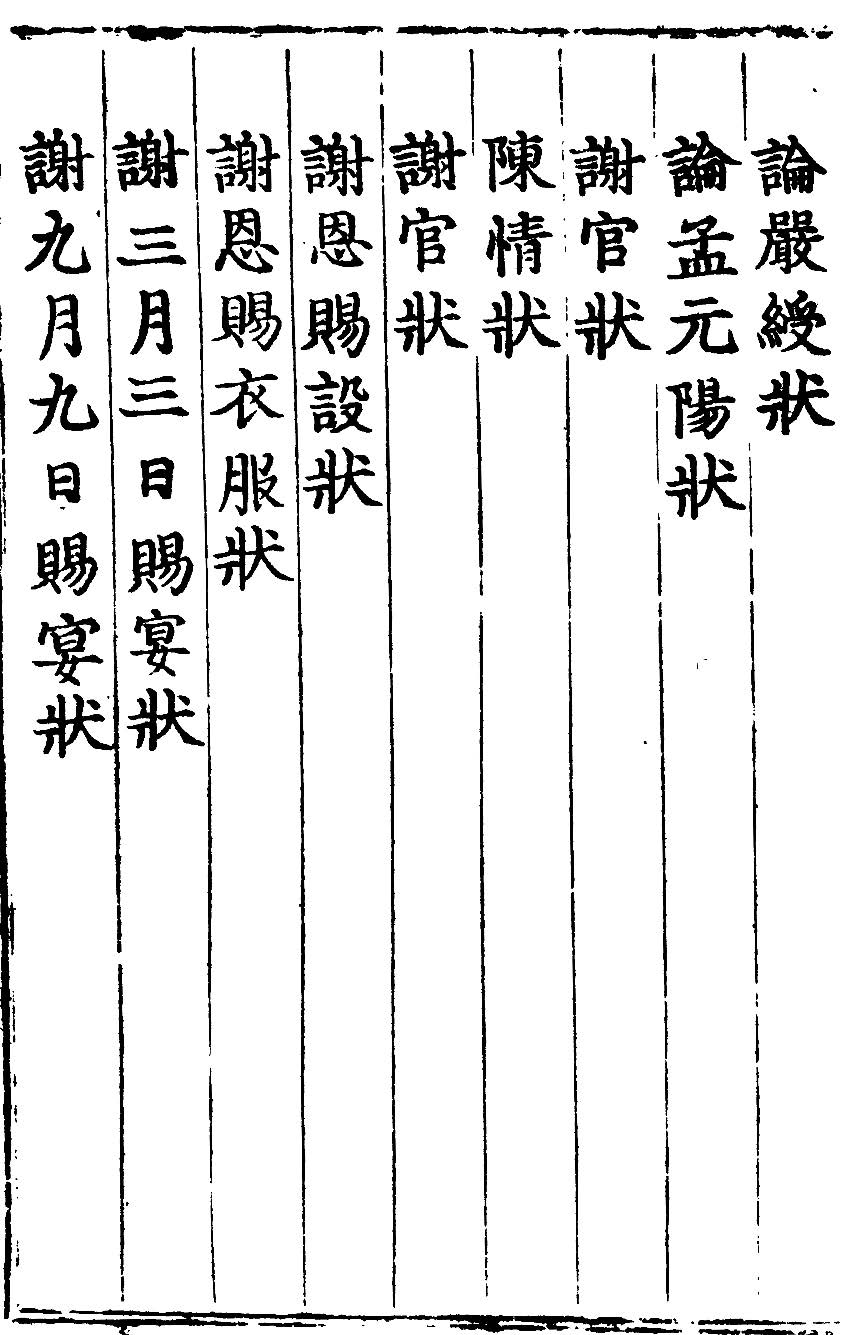 論嚴綬狀
論孟元陽狀
謝官狀
陳情狀
謝官狀
謝恩賜設狀
謝恩賜衣服狀
謝三月三日賜宴狀
謝九月九日賜宴狀